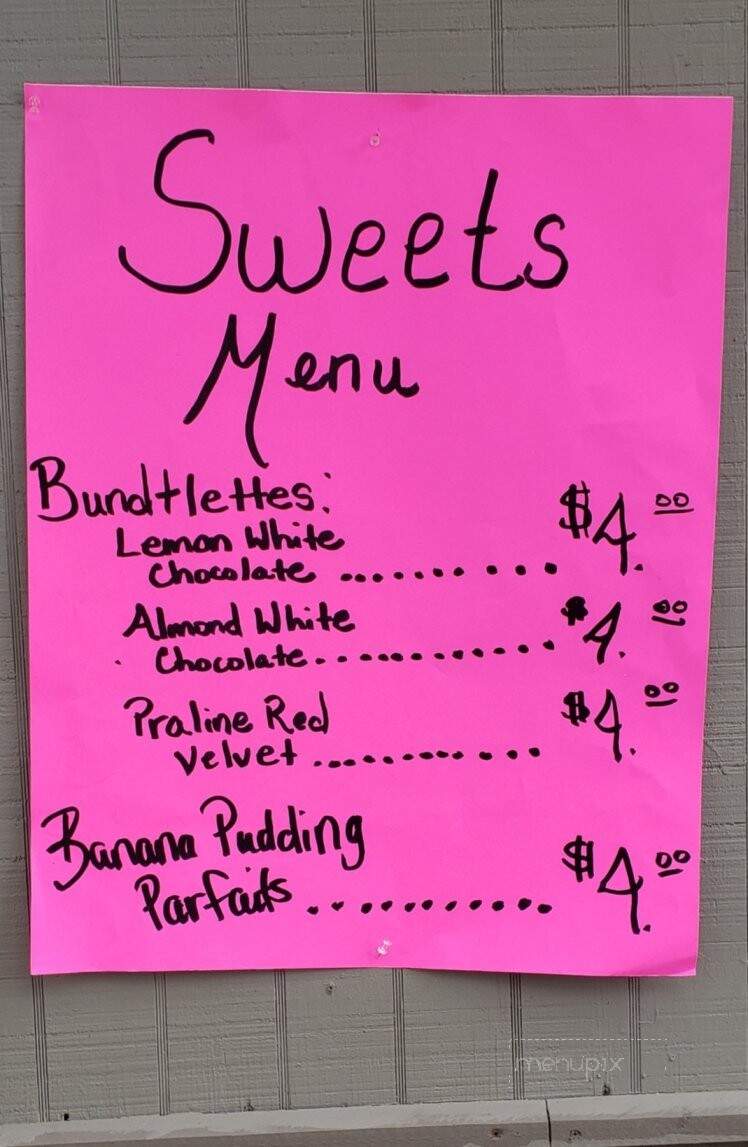 Sweets
Menu
Bundtlettes:
Lemon White
Chocolate ............ $4.00
Almond White
Chocolate ............. $4.00
Praline Red
Velvet ............. $4.00
Banana Pudding
Parfaits ........... $4.00
menupix